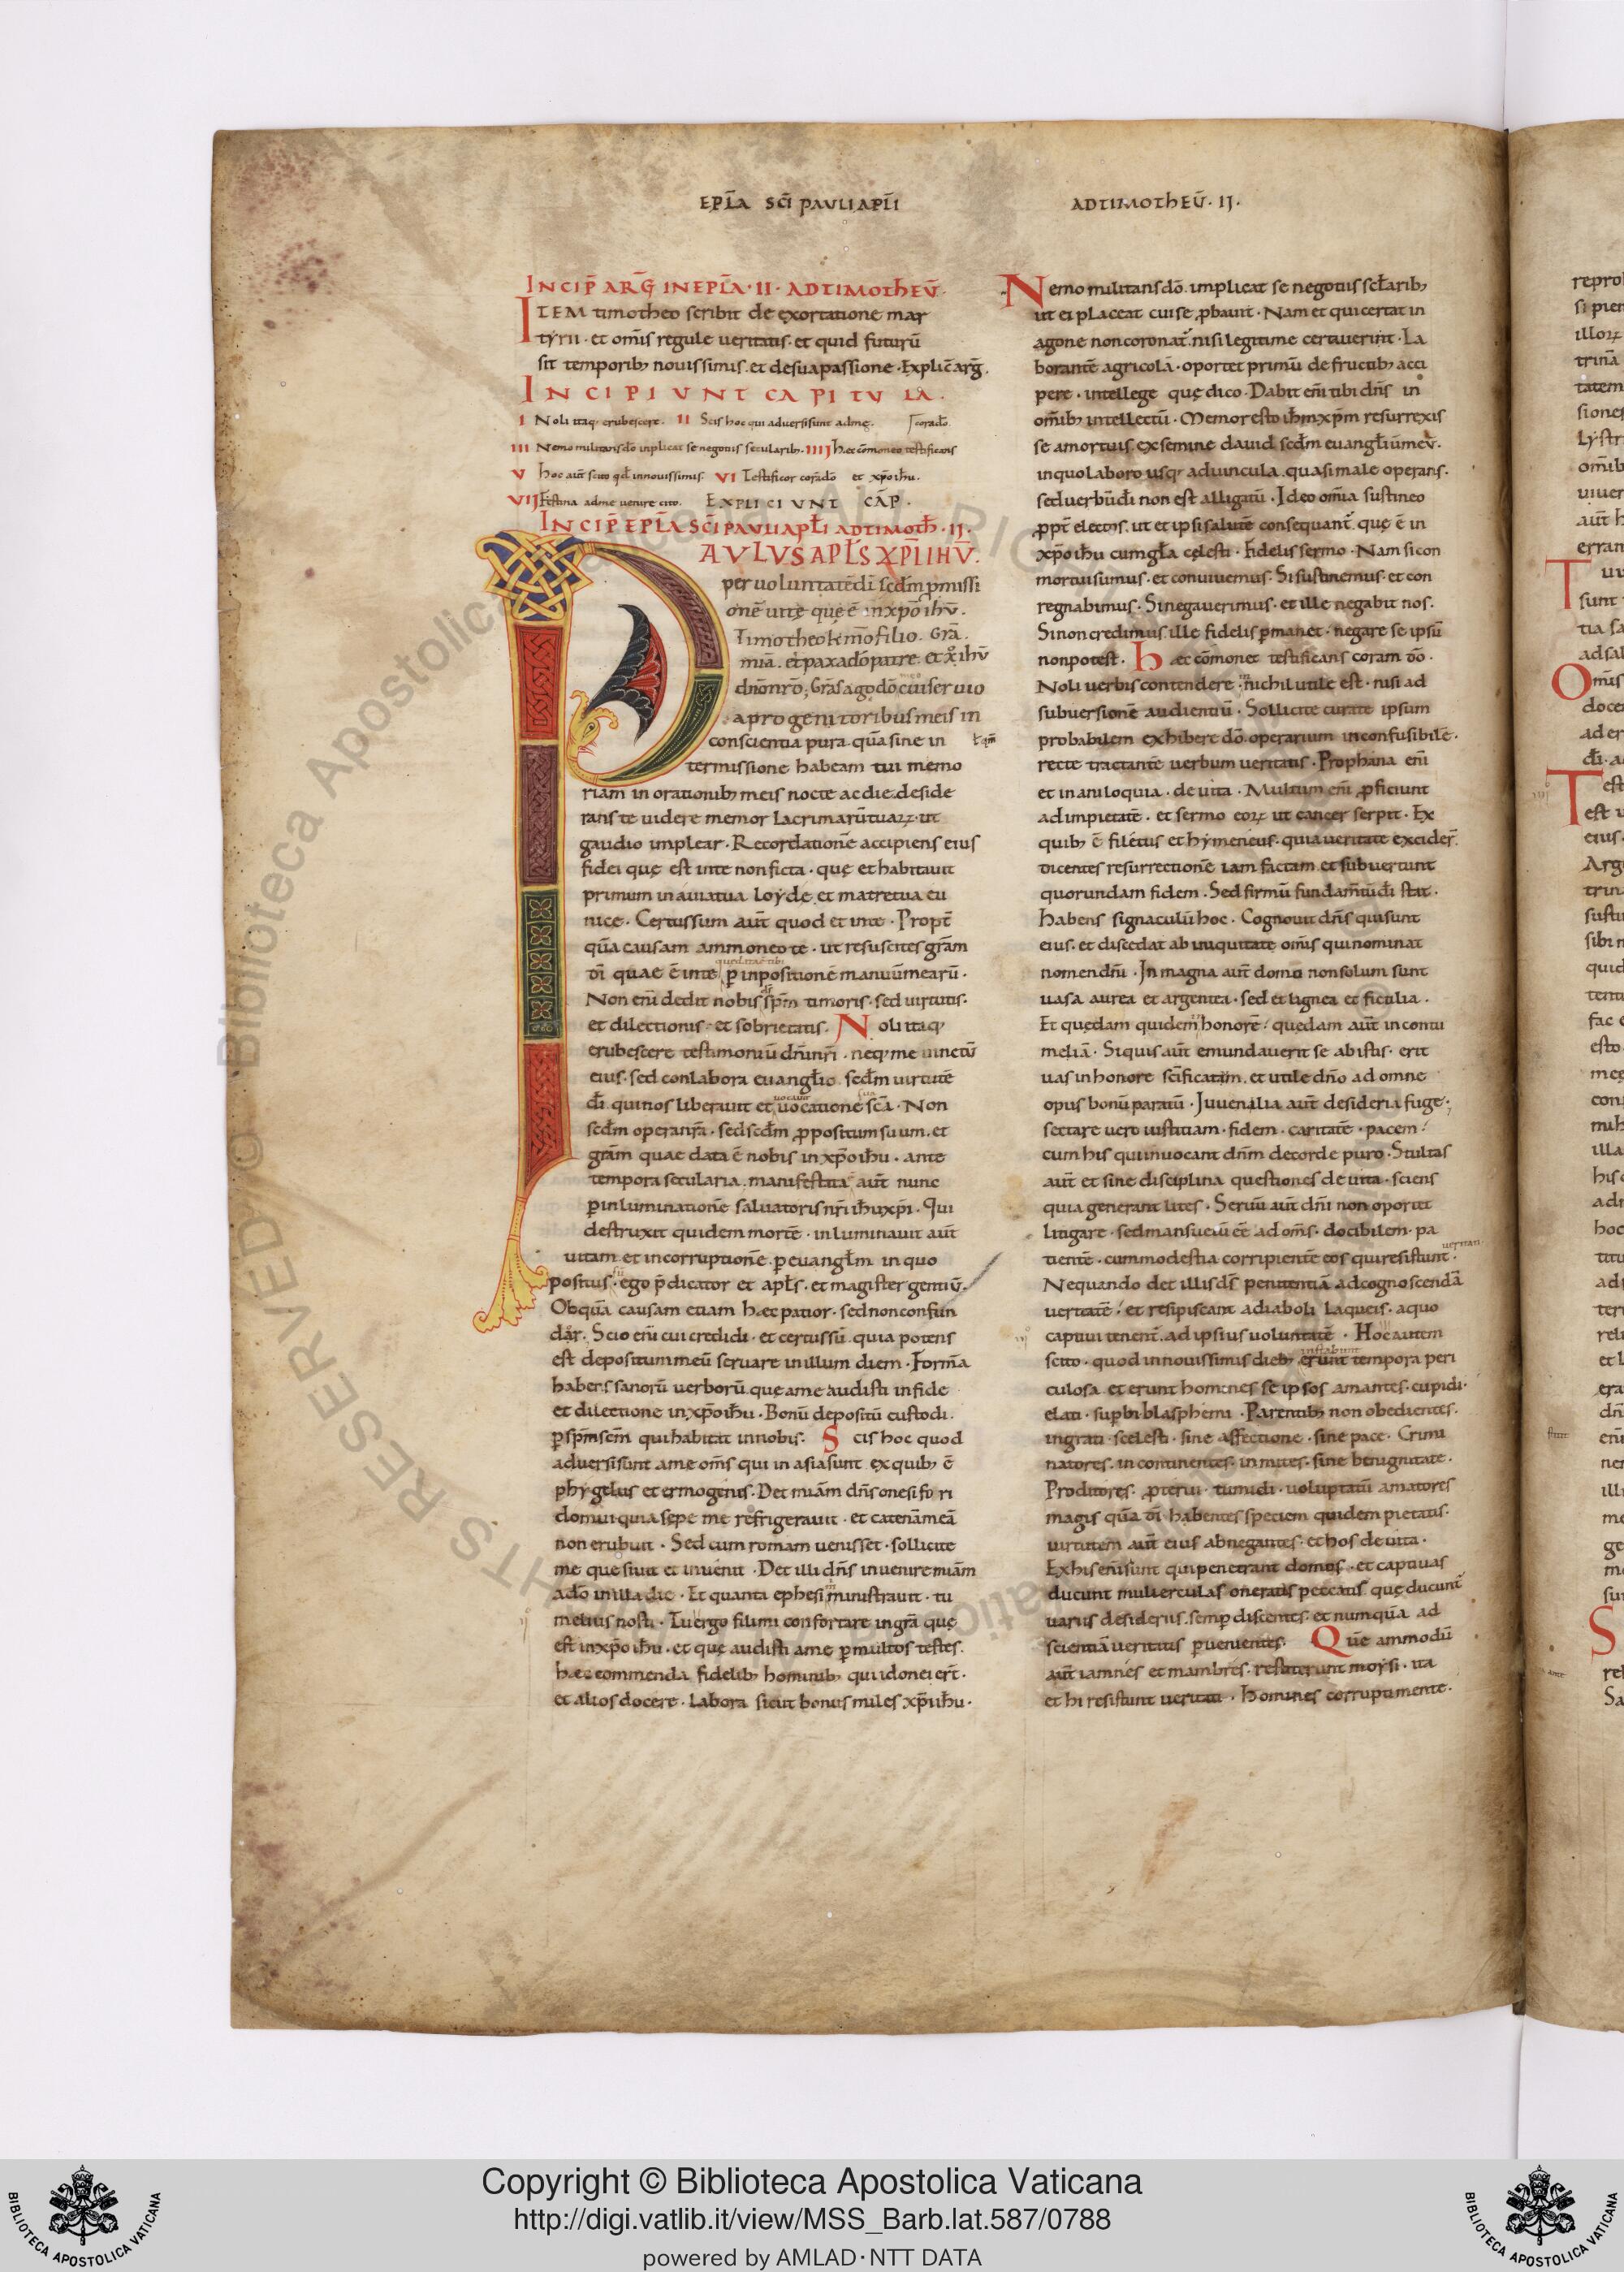 EPL̄A SC̄I PAVLI APL̄I
AD TIMOTHEV̄· II·
INCIP̄ ARḠ IN EPL̄A· II· AD TIMOTHEV̄
ITEM timotheo scribit de exortatione mar
tyrii· et om̄is regule ueritatis· et quid futurū
sit temporib; nouissimis· et de sua passione· Explic̄ arḡ.
INCIPIUNT CAPITULA·
I Noli itaq; erubescere· II Scis hoc qui aduersi sunt a dme·
III Nemo militans dō inplicat se negotiis secularib;· IIII hec cōmoneo testificans coradō
V hoc aut̄ scito qd̄ in nouissimis· VI Testificor corādo et xp̄o ih̄u·
VII Festina ad me uenire cito· EXPLICIUNT CAP̄·
INCIP̄ EPL̄A SC̄I PAVLI APL̄I AD TIMOTH̄· II·
PAULUS APL̄S XP̄I IHV̄·
per uoluntatē dī sedm̄ p̄missi
onē uitę quę ē in xp̄o ihv̄·
Timotheo km̄o filio· Grā·
miā· et pax a dō patre· et xp̄o ihv̄
dn̄o nr̄o; Grās ago dō cui seruio
a progenitoribus meis in
conscientia pura· quā sine in
ł qm̄
termissione habeam tui memo
riam in orationib; meis nocte ac die· deside
rans te uidere memor lacrimarū tuarꝝ· ut
gaudio implear· Recordationē accipiens eius
fidei quę est in te non ficta· quę et habitauit
primum in auia tua loyde· et matre tua eu
nice· Certus sum aut̄ quod et in te· Propt̄
quā causam ammoneo te· ut resuscites grām
dī quae ē in te p̄ inpositionē manuū mearū·
Non eni dedit nobis dī sp̄m timoris· sed uirtutis·
et dilectionis· et sobrietatis· Noli itaq;
erubescere testimoniū dn̄i nr̄i· neq; me uinctū
eius· sed conlabora euangl̄io· sedm̄ uirtutē
dī· qui nos liberauit et uocatione scā· Non
sedm̄ opera nr̄a· sed sedm̄ ꝓpositum suum· et
grām quae data ē nobis in xp̄o ih̄u· ante
tempora secularia· manifestata aut̄ nunc
p̄ inluminationē saluatoris nr̄i ih̄u xp̄i· Qui
destruxit quidem mortē· inluminauit aut̄
uitam et incorruptionē p̄ euangl̄m· in quo
positus sū ego p̄dicator et apl̄s· et magister gentiū·
Ob quā causam etiam hæc patior· sed non confun
dar· Scio eni cui credidi· et certus sū quia potens
est depositum meū seruare in illum diem· Formā
habens sanorū uerborū quę a me audisti in fide
et dilectione in xp̄o ih̄u· Bonū depositū custodi·
p̄ sp̄m scm̄ qui habitat in nobis· Scis hoc quod
aduersi sunt a me om̄s qui in asia sunt ex quib; ē
phygelus et ermogenis· Det miām dn̄s onesifori
domui· quia sepe me refrigerauit· et catenā meā
non erubuit· Sed cum romam uenisset· sollicite
me quesiuit et inuenit· Det illi dn̄s inuenire miām
a dō in illa die· Et quanta ephesi ministrauit· tu
melius nosti· Tu ergo fili mi confortare in grā quę
est in xp̄o ih̄u· et quę audisti a me p̄ multos testes·
hæc commenda fidelib; hominib; qui idonei er̄t·
et alios docere· Labora sicut bonus miles xp̄i ih̄u·
Nemo militans dō· implicat se negotiis scl̄arib;
ut ei placeat cui se ꝓbauit· Nam et qui certat in
agone non coronat̄· nisi legitime certauerint· La
borantē agricolā· oportet primū de fructib; acci
pere· intellege quę dico· Dabit eni tibi dn̄s in
om̄ib; intellectū· Memor esto ih̄m xp̄m resurrexis
se a mortuis ex semine dauid sedm̄ euangl̄iū meū·
in quo laboro usq; ad uincula· quasi male operans·
sed uerbū dī non est alligatū· Ideo om̄ia sustineo
ꝓpt̄ electos· ut et ipsi salutē consequant̄· quę ē in
xp̄o ih̄u cum gl̄a cęlesti· Fidelis sermo· Nam si con
mortui sumus· et conuiuemus· Si sustinemus· et con
regnabimus· Si negauerimus· et ille negabit nos·
Si non credimus ille fidelis p̄manet· negare se ipsū
non potest· Hæc cōmonet testificans coram dō·
Noli uerbis contendere· in nichil utile est· nisi ad
subuersionē audientiū· Sollicite curate ipsum
probabilem exhibere dō· operarium inconfusibilē·
recte tractantē uerbum ueritatis· Prophana eni
et inaniloquia· deuita· Multum eni ꝓficiunt
ad impietatē· et sermo eorꝝ ut cancer serpit· Ex
quib; ē filetus et hymeneus· quia ueritate excider̄
dicentes resurrectionē iam factam et subuertunt
quorundam fidem· Sed firmū fundam̄tū dī stat·
habens signaculū hoc· Cognouit dn̄s qui sunt
eius· et discedat ab iniquitate om̄is qui nominat
nomen dn̄i· In magna aut̄ domū non solum sunt
uasa aurea et argentea· sed et lignea et fictilia·
Et quędam quidem in honorē· quędam aut̄ in contu
meliā· Si quis aut̄ emundauerit se ab istis· erit
uas in honore sc̄ificatum· et utile dn̄o ad omne
opus bonū paratū· Iuuenilia aut̄ desideria fuge·
sectare uero iustitiam· fidem· caritatē· pacem·
cum his qui inuocant dn̄m de corde puro· Stultas
aut̄ et sine disciplina questiones deuita· sciens
quia generant lites· Seruū aut̄ dn̄i non oportet
litigare· sed mansuetū ēē ad om̄s· docibilem· pa
tientē· cum modestia corripientē eos qui resistunt ueritati·
Nequando det illis dn̄s penitentiā ad cognoscendā
ueritatē· et resipiscant a diaboli laqueis· a quo
captiui tenent̄· ad ipsius uoluntatē· Hoc autem
scito· quod in nouissimis dieb; instabunt erunt tempora peri
culosa et erunt homines se ipsos amantes· cupidi·
elati· supbi· blasphemi· Parentib; non obedientes·
ingrati· scelesti· sine affectione· sine pace· Crimi
natores· in continentes· in mites· sine benignitate·
Proditores· ꝓterui· tumidi· uoluptatū amatores
magis quā dī· habentes speciem quidem pietatis·
uirtutem aut̄ eius abnegantes· et hos deuita·
Ex his eni sunt qui penetrant domos· et captiuas
ducunt mulierculas oneratas peccatis· quę ducunt̄
uariis desideriis· semp̄ discentes· et numquā ad
scientiā ueritatis p̄uenientes· Quē ammodū
aut̄ iamnes et mambres· restiterunt moysi· ita
et hi resistunt ueritati· homines corrupti mente·
Copyright © Biblioteca Apostolica Vaticana
http://digi.vatlib.it/view/MSS_Barb.lat.587/0788
powered by AMLAD·NTT DATA
BIBLIOTECA APOSTOLICA VATICANA
BIBLIOTECA APOSTOLICA VATICANA